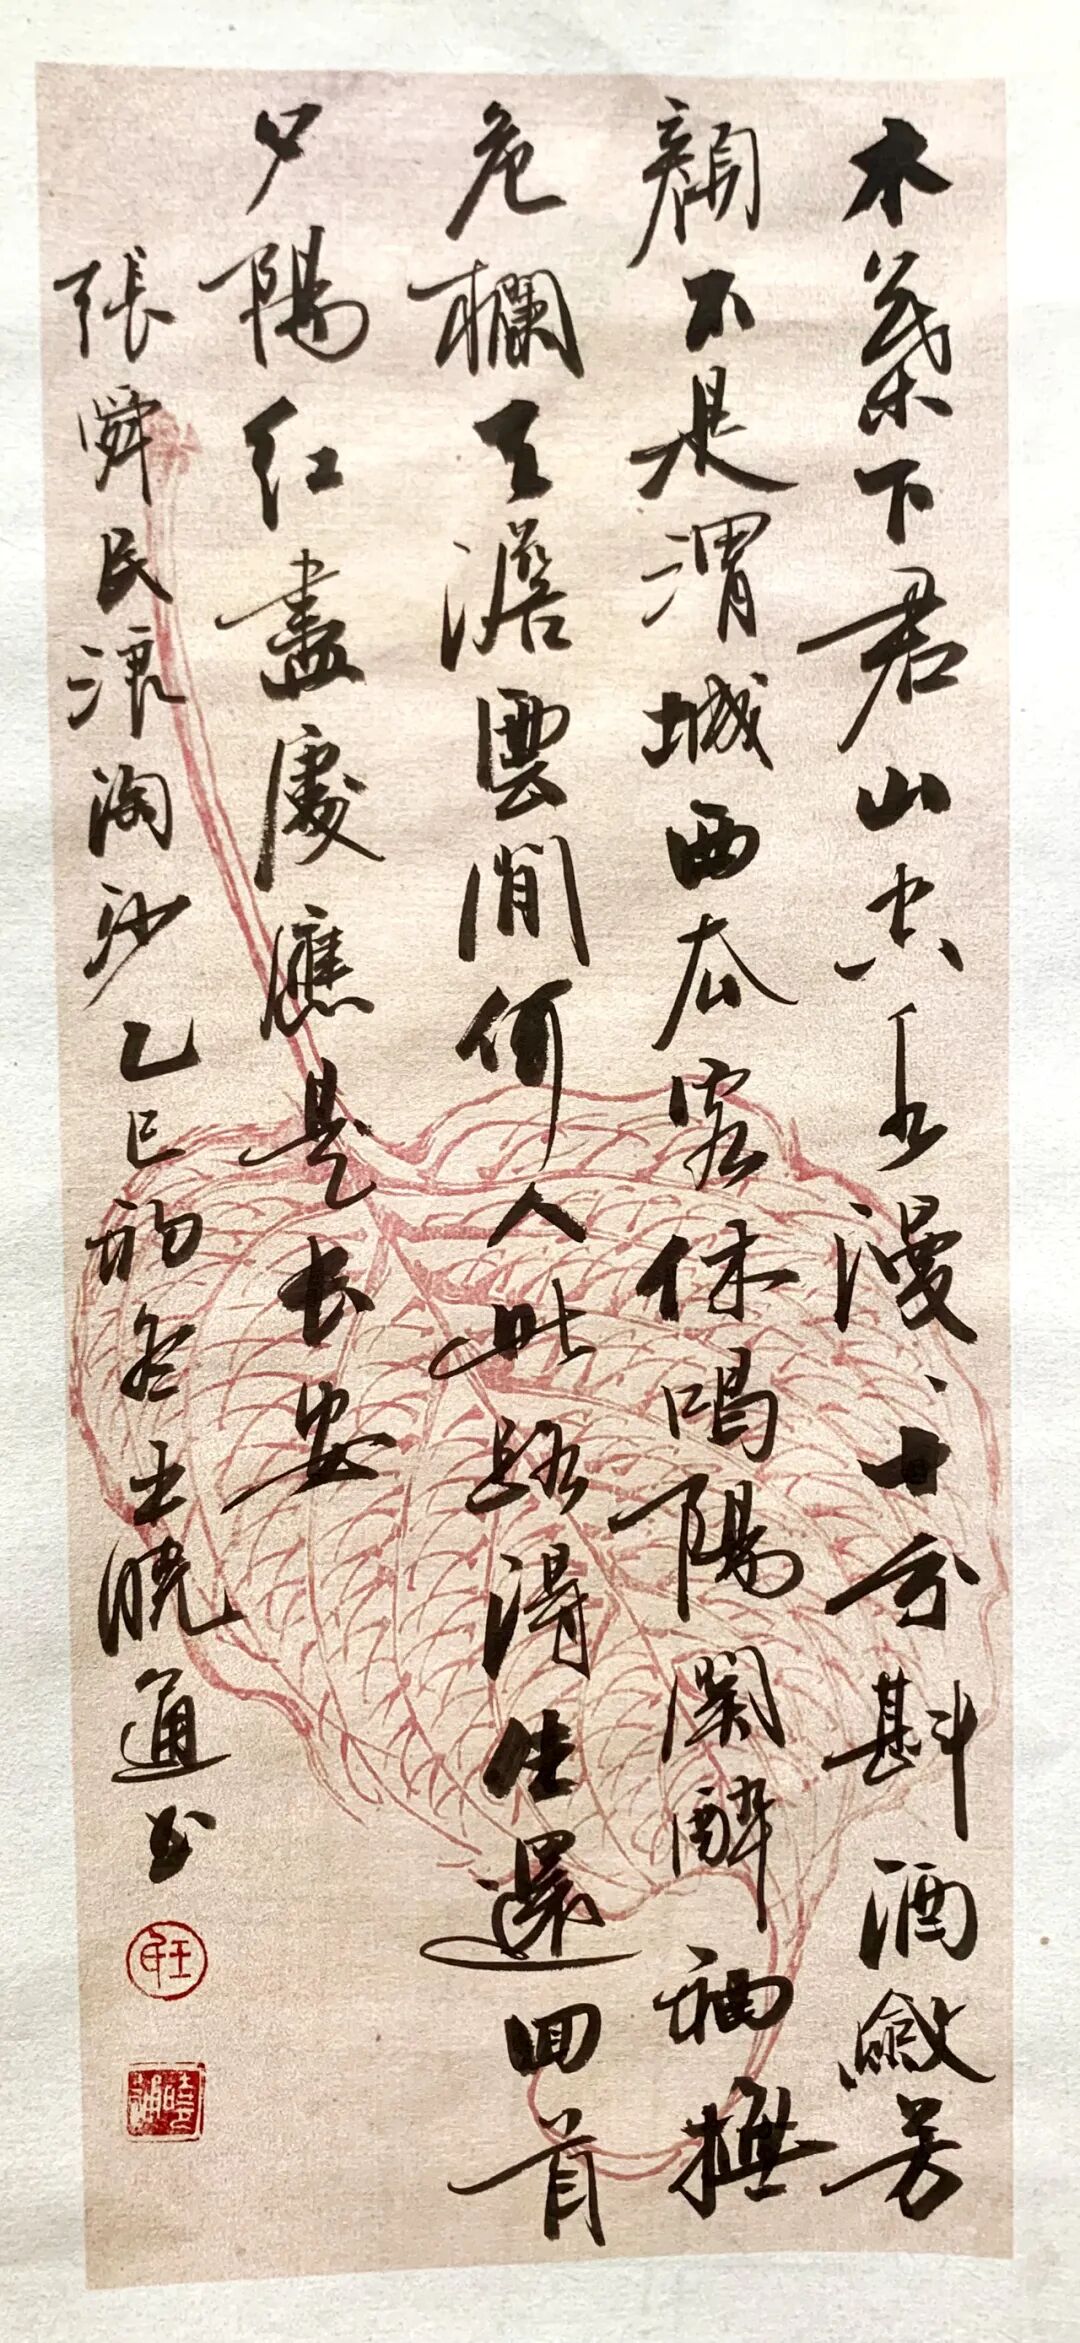 木葉下君山空水漫、十分斟酒斂芳
顏不是渭城西去客休唱陽關醉袖撫
危欄天澹雲閒何人此路得生還回首
夕陽紅盡處應是長安
張舜民浪淘沙乙巳初冬王曉通书